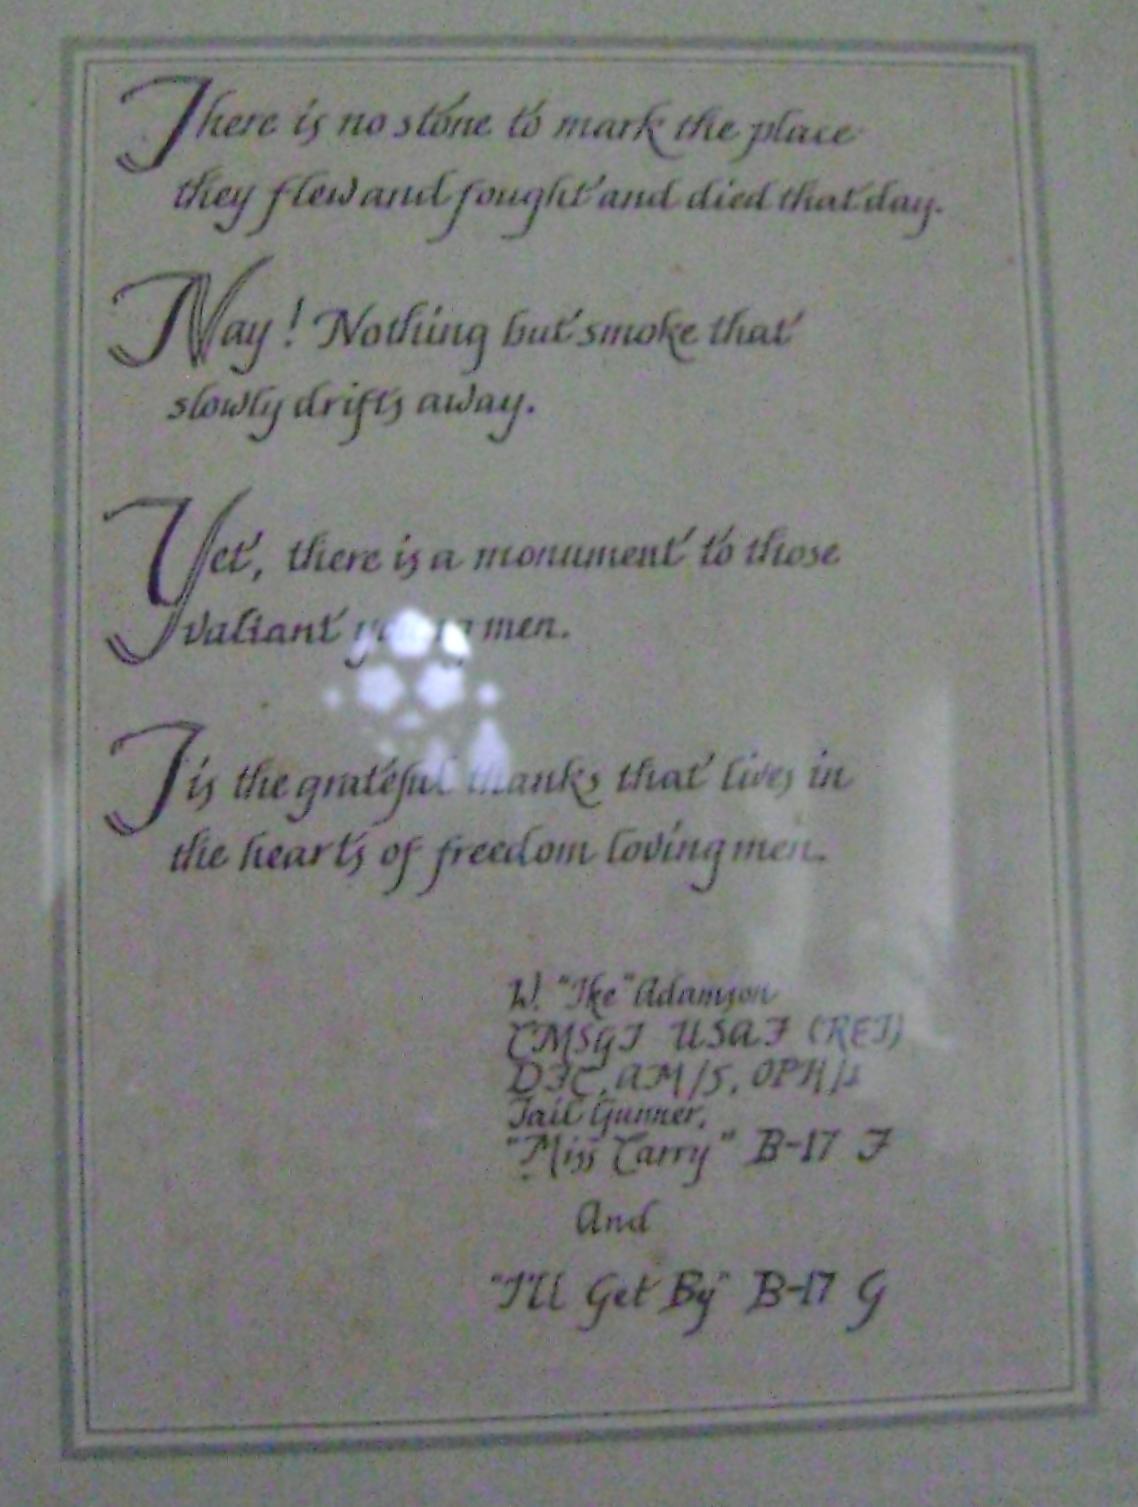 There is no stone to mark the place
they flew and fought and died that day.
Nay! Nothing but smoke that
slowly drifts away.
Yet, there is a monument to those
valiant young men.
Tis the grateful thanks that lives in
the hearts of freedom loving men.
W. "Ike" Adamson
CMSGT USAF (RET)
DFC, AM/5, OPH/1
Tail Gunner,
"Miss Carry" B-17 F
And
"I'll Get By" B-17 G